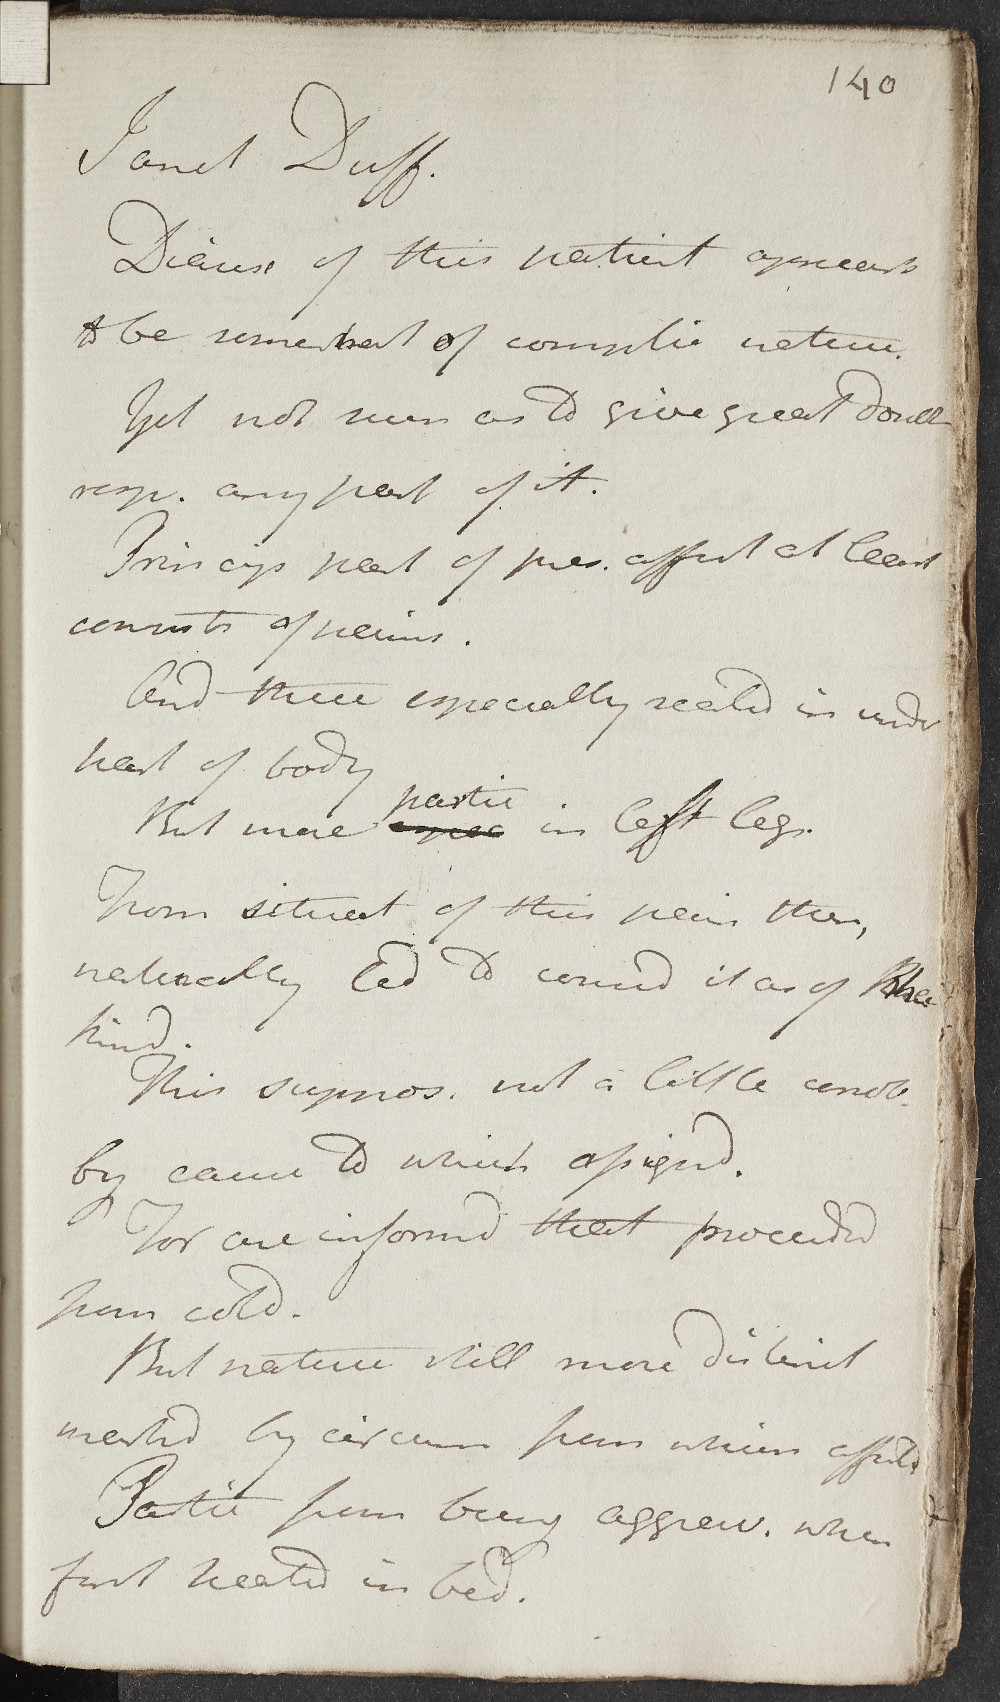 140
Janet Duff.
Disease of this patient appears
to be somewhat of complic nature.
Yet not such as to give great doubt
resp. any part of it.
Princip part of pres. affect at least
consists of pains.
And these especially seated in under
part of body
But more partic in left leg.
From situat of this pain then,
naturally led to consid it as of Rheu
kind.
This suppos. not a little corrob.
by cause to which assignd.
For are informd that proceeded
from cold.
But nature still more distinct
markd by circum from which affectd
Partic from being aggrav. when
first heated in bed.